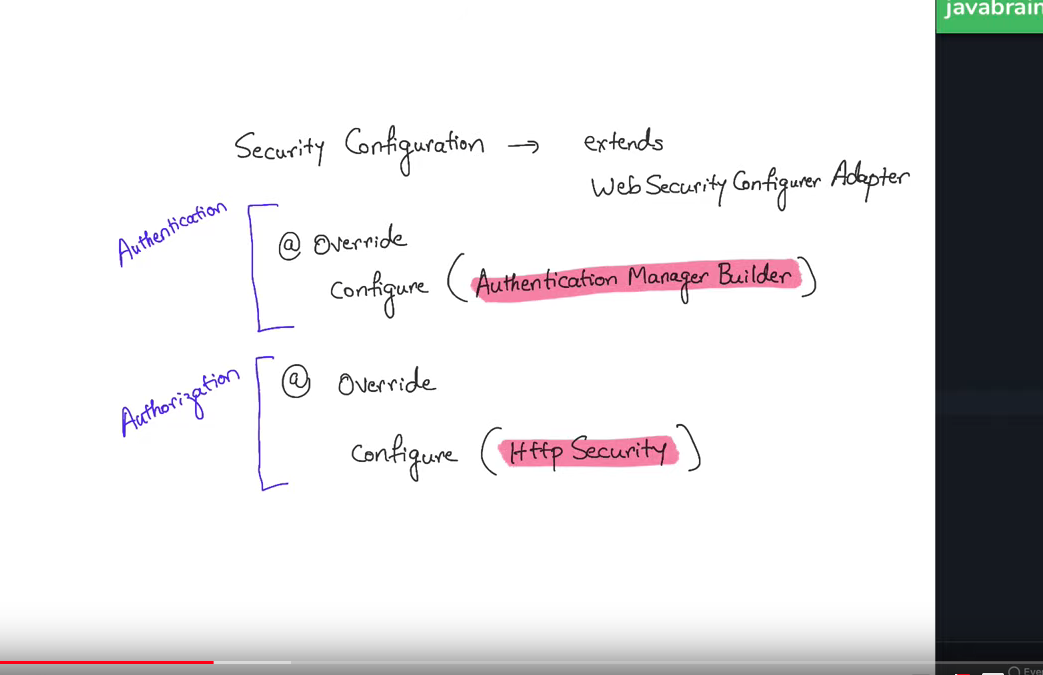 javabrain
Security Configuration → extends
WebSecurityConfigurer Adapter
Authentication
@ Override
configure (Authentication Manager Builder)
Authorization
@ Override
configure (Http Security)